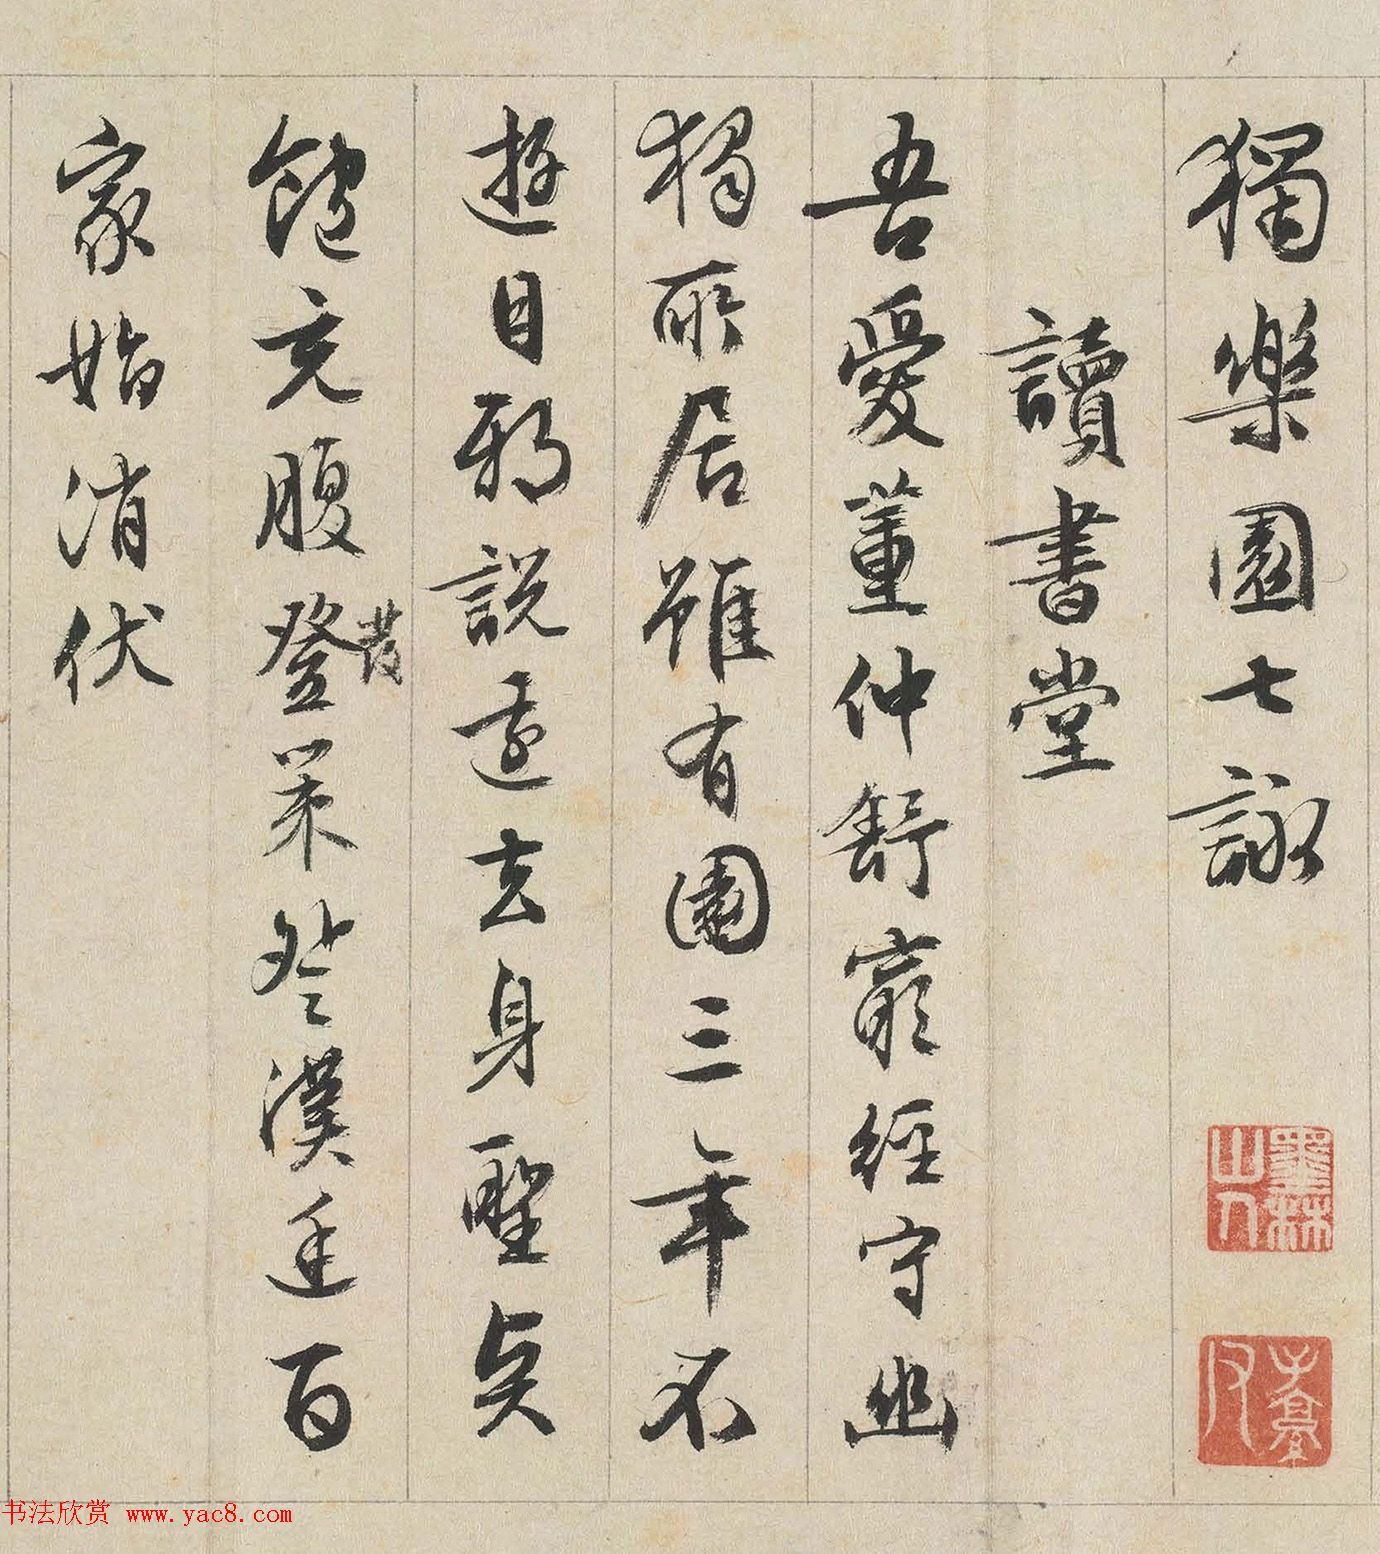 獨樂園七詠
讀書堂
吾愛董仲舒窮經守幽
獨所居雖有園三年不
遊目邪說遠去身聖
飽充腹登策登漢廷百
家始消伏
墨林山人
书法欣赏 www.yac8.com